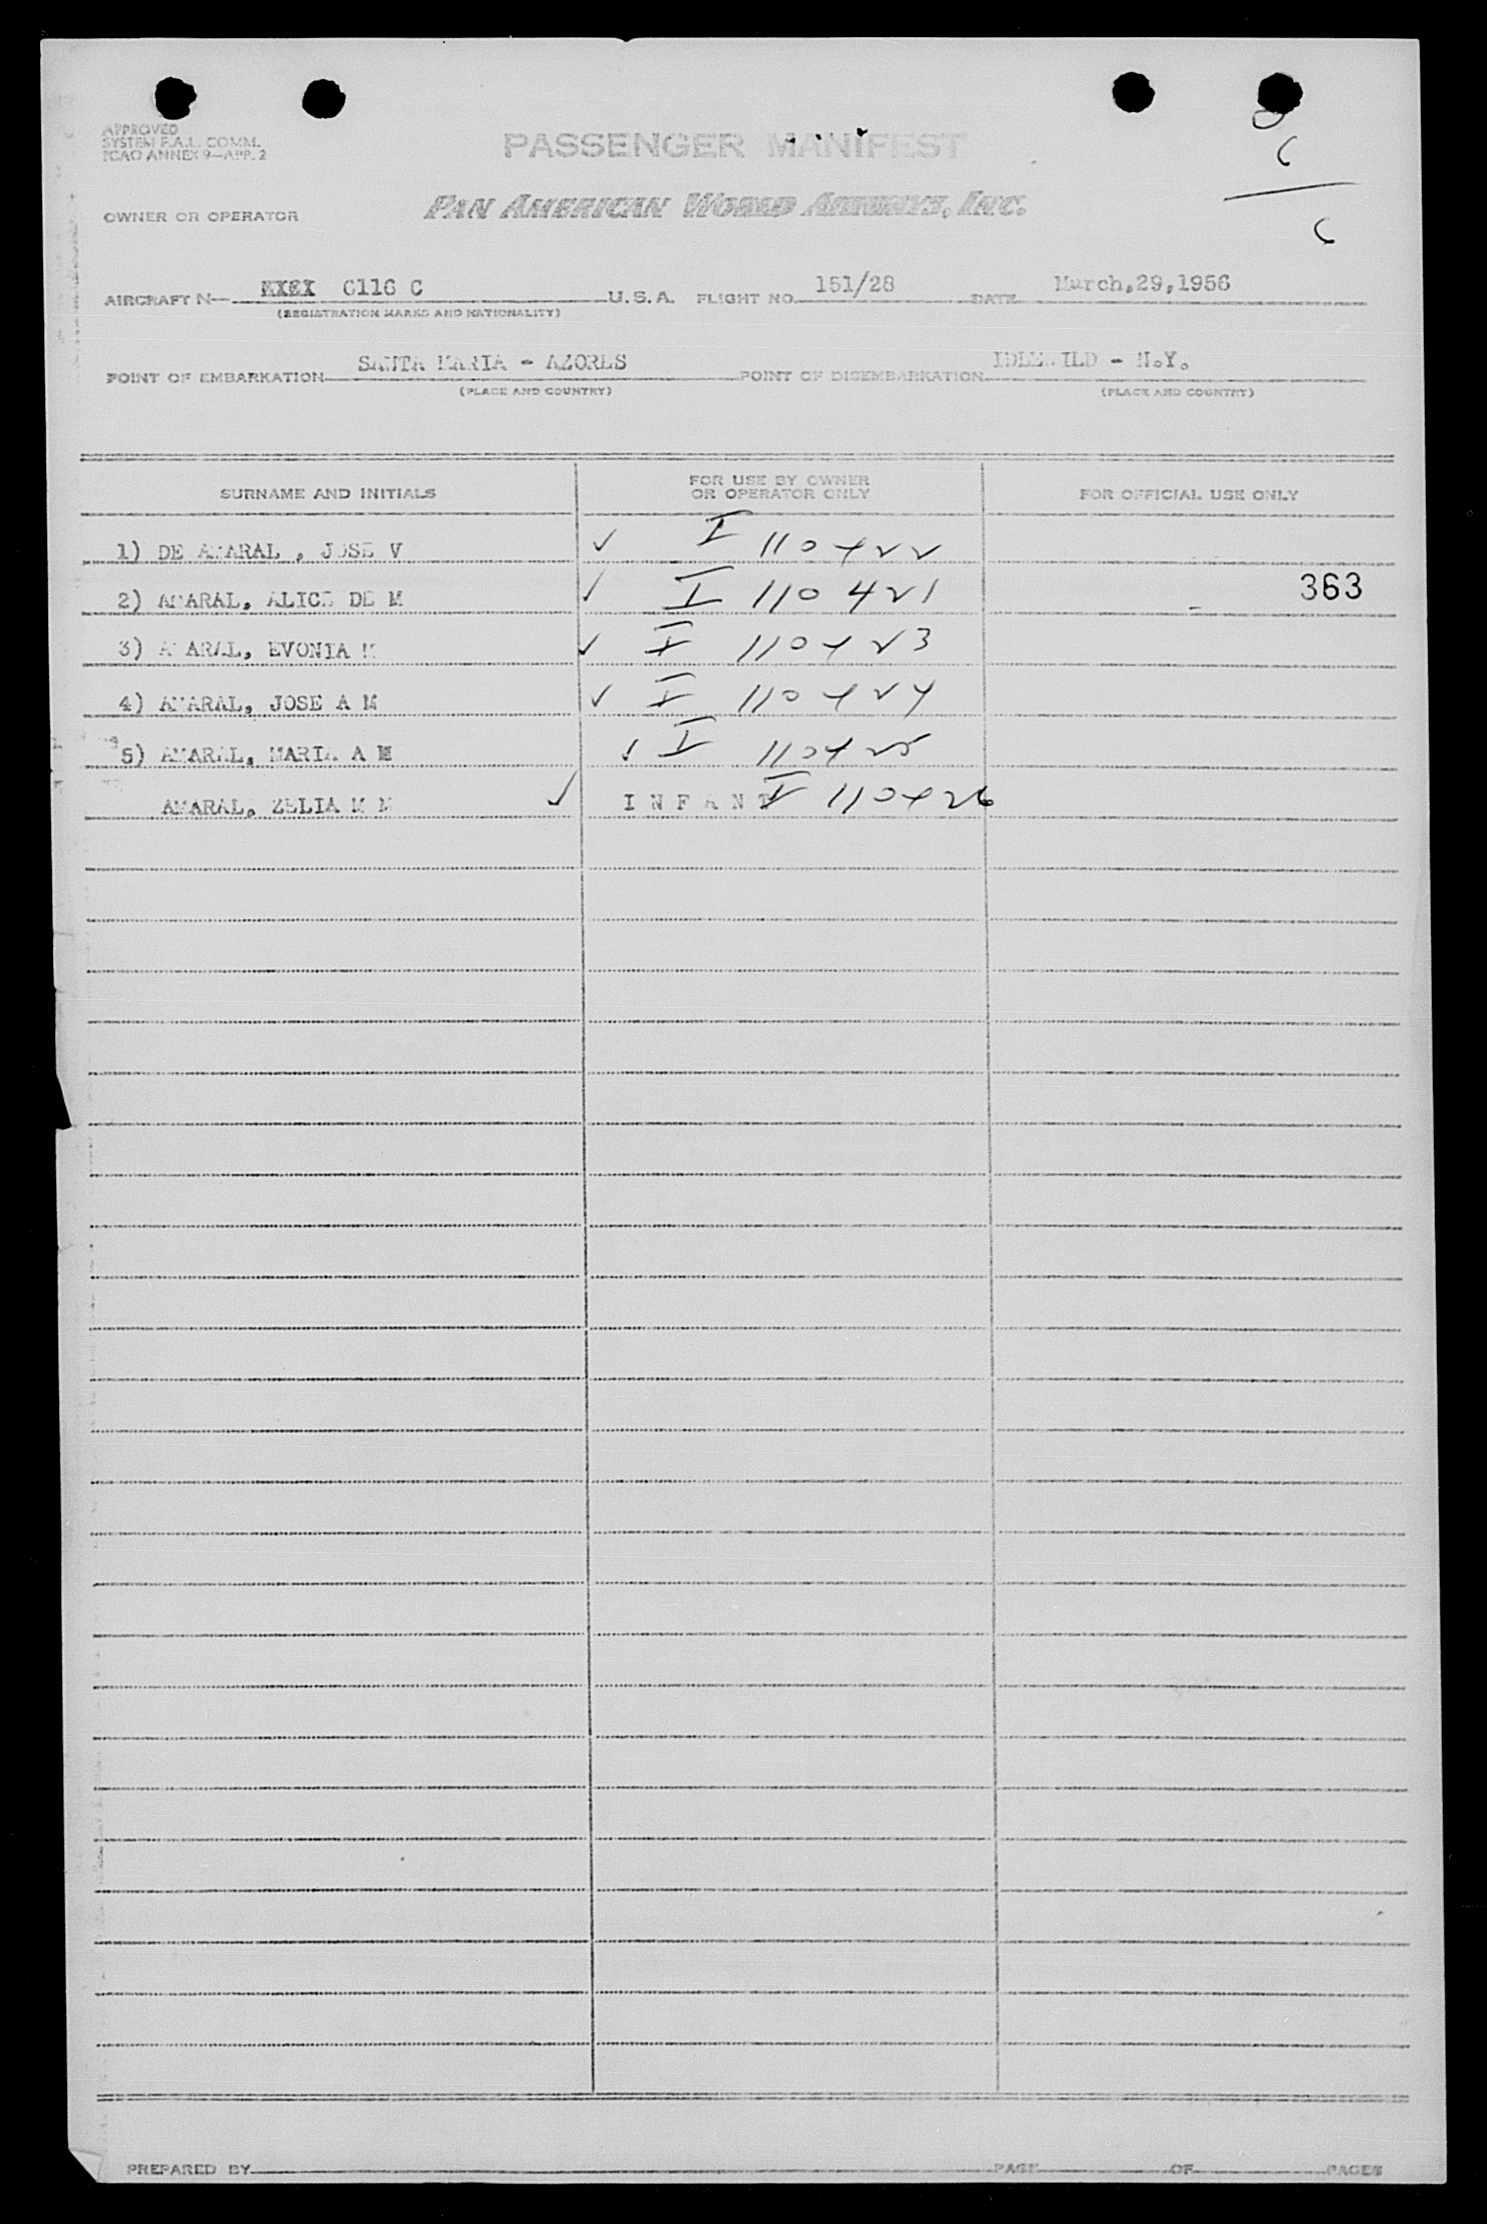 APPROVED
SYSTEM F.A.L. COMM.
ICAO ANNEX 9—APP. 2
PASSENGER MANIFEST
0
6
6
OWNER OR OPERATOR PAN AMERICAN WORLD AIRWAYS, INC.
AIRCRAFT N— 6116 C U.S.A. FLIGHT NO. 151/28 DATE March,29,1956
(REGISTRATION MARKS AND NATIONALITY)
POINT OF EMBARKATION SANTA MARIA - AZORES POINT OF DISEMBARKATION IDLEWILD - N.Y.
(PLACE AND COUNTRY) (PLACE AND COUNTRY)
SURNAME AND INITIALS FOR USE BY OWNER OR OPERATOR ONLY FOR OFFICIAL USE ONLY
1) DE AMARAL , JOSE V ✓ I 110422
2) AMARAL, ALICE DE M ✓ I 110421 363
3) AMARAL, EVONIA M ✓ I 110423
4) AMARAL, JOSE A M ✓ I 110424
5) AMARAL, MARIA A M ✓ I 110425
AMARAL, ZELIA M M ✓ INFANT I 110426
PREPARED BY PAGE OF PAGES